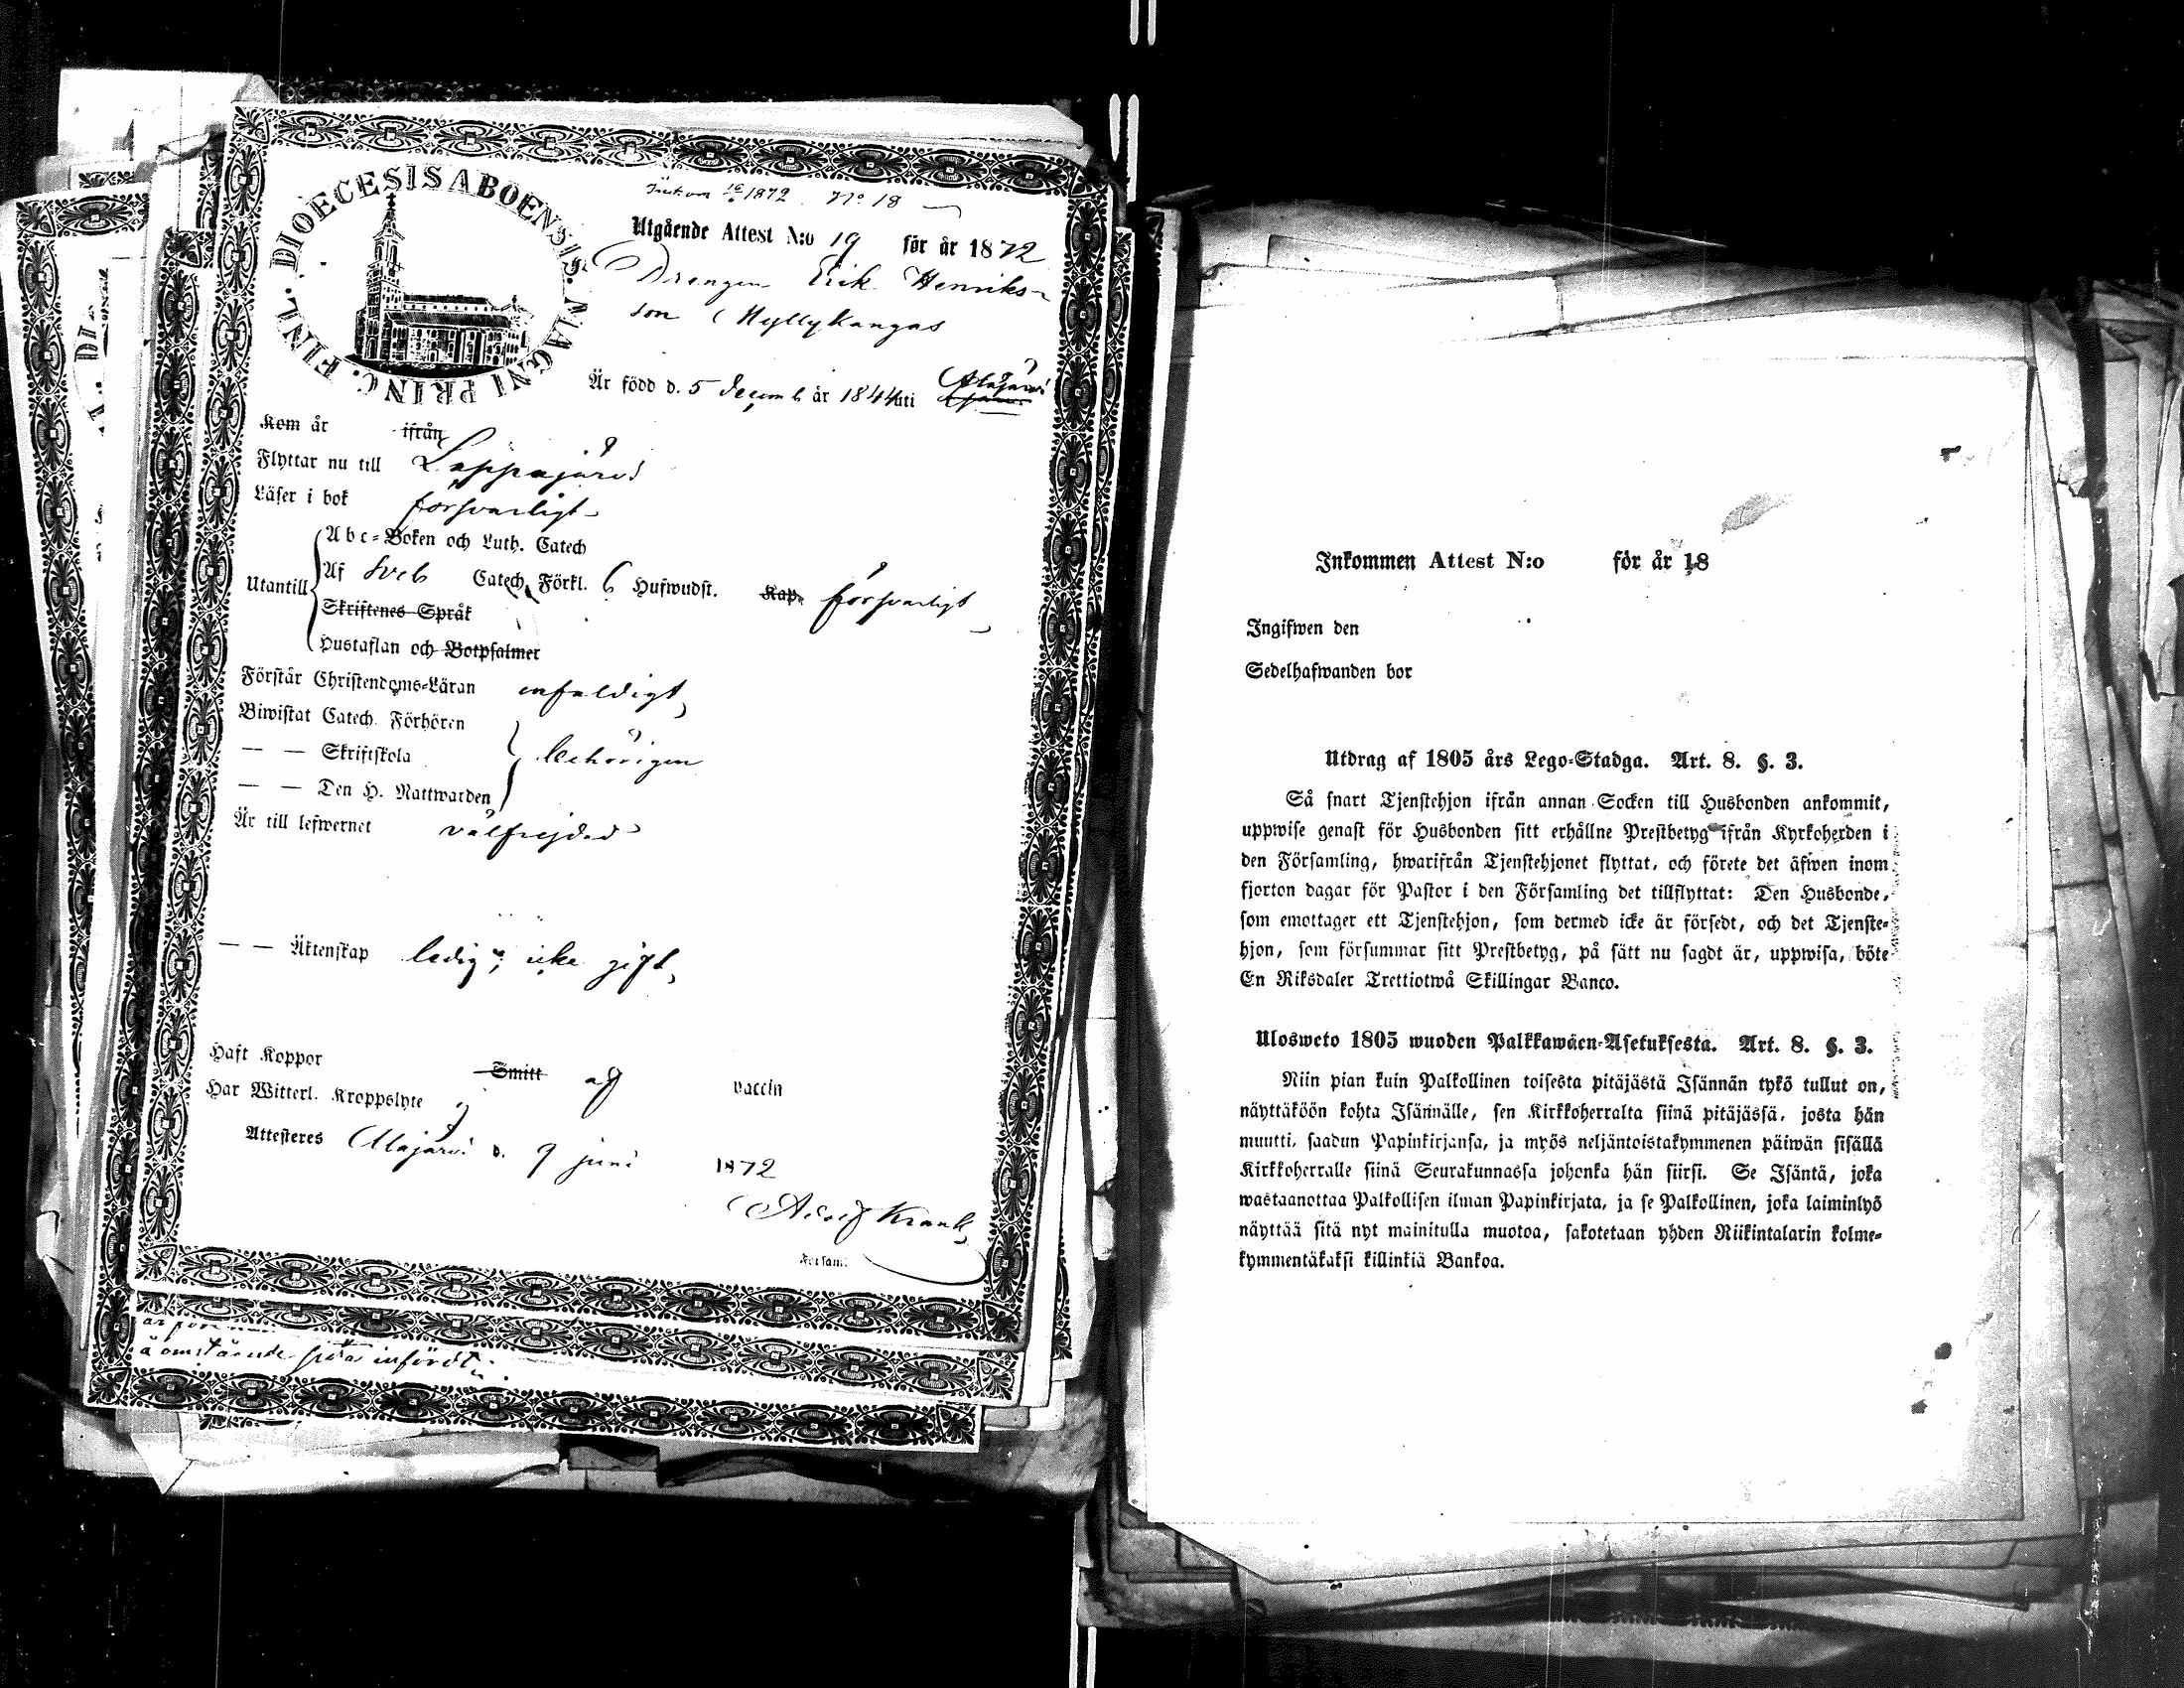 DIOECESIS ABOENSIS. MAGNI PRINC. FINL.
Inkom 16/6 1872. No 18
Utgående Attest N:o 19 för år 1872
Drengen Erik Henriks-
son Myllykangas
Är född d. 5 decemb år 1844 uti Alajärvi
Kom år ifrån
Flyttar nu till Lappajärvi
Läser i bok försvarligt
Utantill
Abc-Boken och Luth. Catech
Af Sveb Catech. Förkl. 6 Hufwudst. Kap. försvarligt
Skriftenes Språk
Hustaflan och Botpsalmer
Förstår Christendoms-Läran enfaldigt
Biwistat Catech. Förhören
— — Skriftskola behörigen
— — Den H. Nattwarden
Är till lefwernet välfrejdad
— — Äktenskap ledig, icke gift
Haft Koppor Smitt af vaccin
Har Witterl. Kroppslyte ej
Attesteres Alajärvi d. 9 juni 1872
Adolf Krank
Försam.
å omstående sida infördt.
Inkommen Attest N:o för år 18
Ingifwen den
Sedelhafwanden bor
Utdrag af 1805 års Lego-Stadga. Art. 8. §. 3.
Så snart Tjenstehjon ifrån annan Socken till Husbonden ankommit,
uppwise genast för Husbonden sitt erhållne Prestbetyg ifrån Kyrkoherden i
den Församling, hwarifrån Tjenstehjonet flyttat, och förete det äfwen inom
fjorton dagar för Pastor i den Församling det tillflyttat: Den Husbonde,
som emottager ett Tjenstehjon, som dermed icke är försedt, och det Tjenste-
hjon, som försummar sitt Prestbetyg, på sätt nu sagdt är, uppwisa, böte
En Riksdaler Trettiotwå Skillingar Banco.
Ulosweto 1805 wuoden Palkkawäen-Asetuksesta. Art. 8. §. 3.
Niin pian kuin Palkollinen toisesta pitäjästä Isännän tykö tullut on,
näyttäköön kohta Isännälle, sen Kirkkoherralta siinä pitäjässä, josta hän
muutti, saadun Papinkirjansa, ja myös neljäntoistakymmenen päiwän sisällä
Kirkkoherralle siinä Seurakunnassa johonka hän siirsi. Se Isäntä, joka
wastaanottaa Palkollisen ilman Papinkirjata, ja se Palkollinen, joka laiminlyö
näyttää sitä nyt mainitulla muotoa, sakotetaan yhden Riikintalarin kolme-
kymmentäkaksi killinkiä Bankoa.